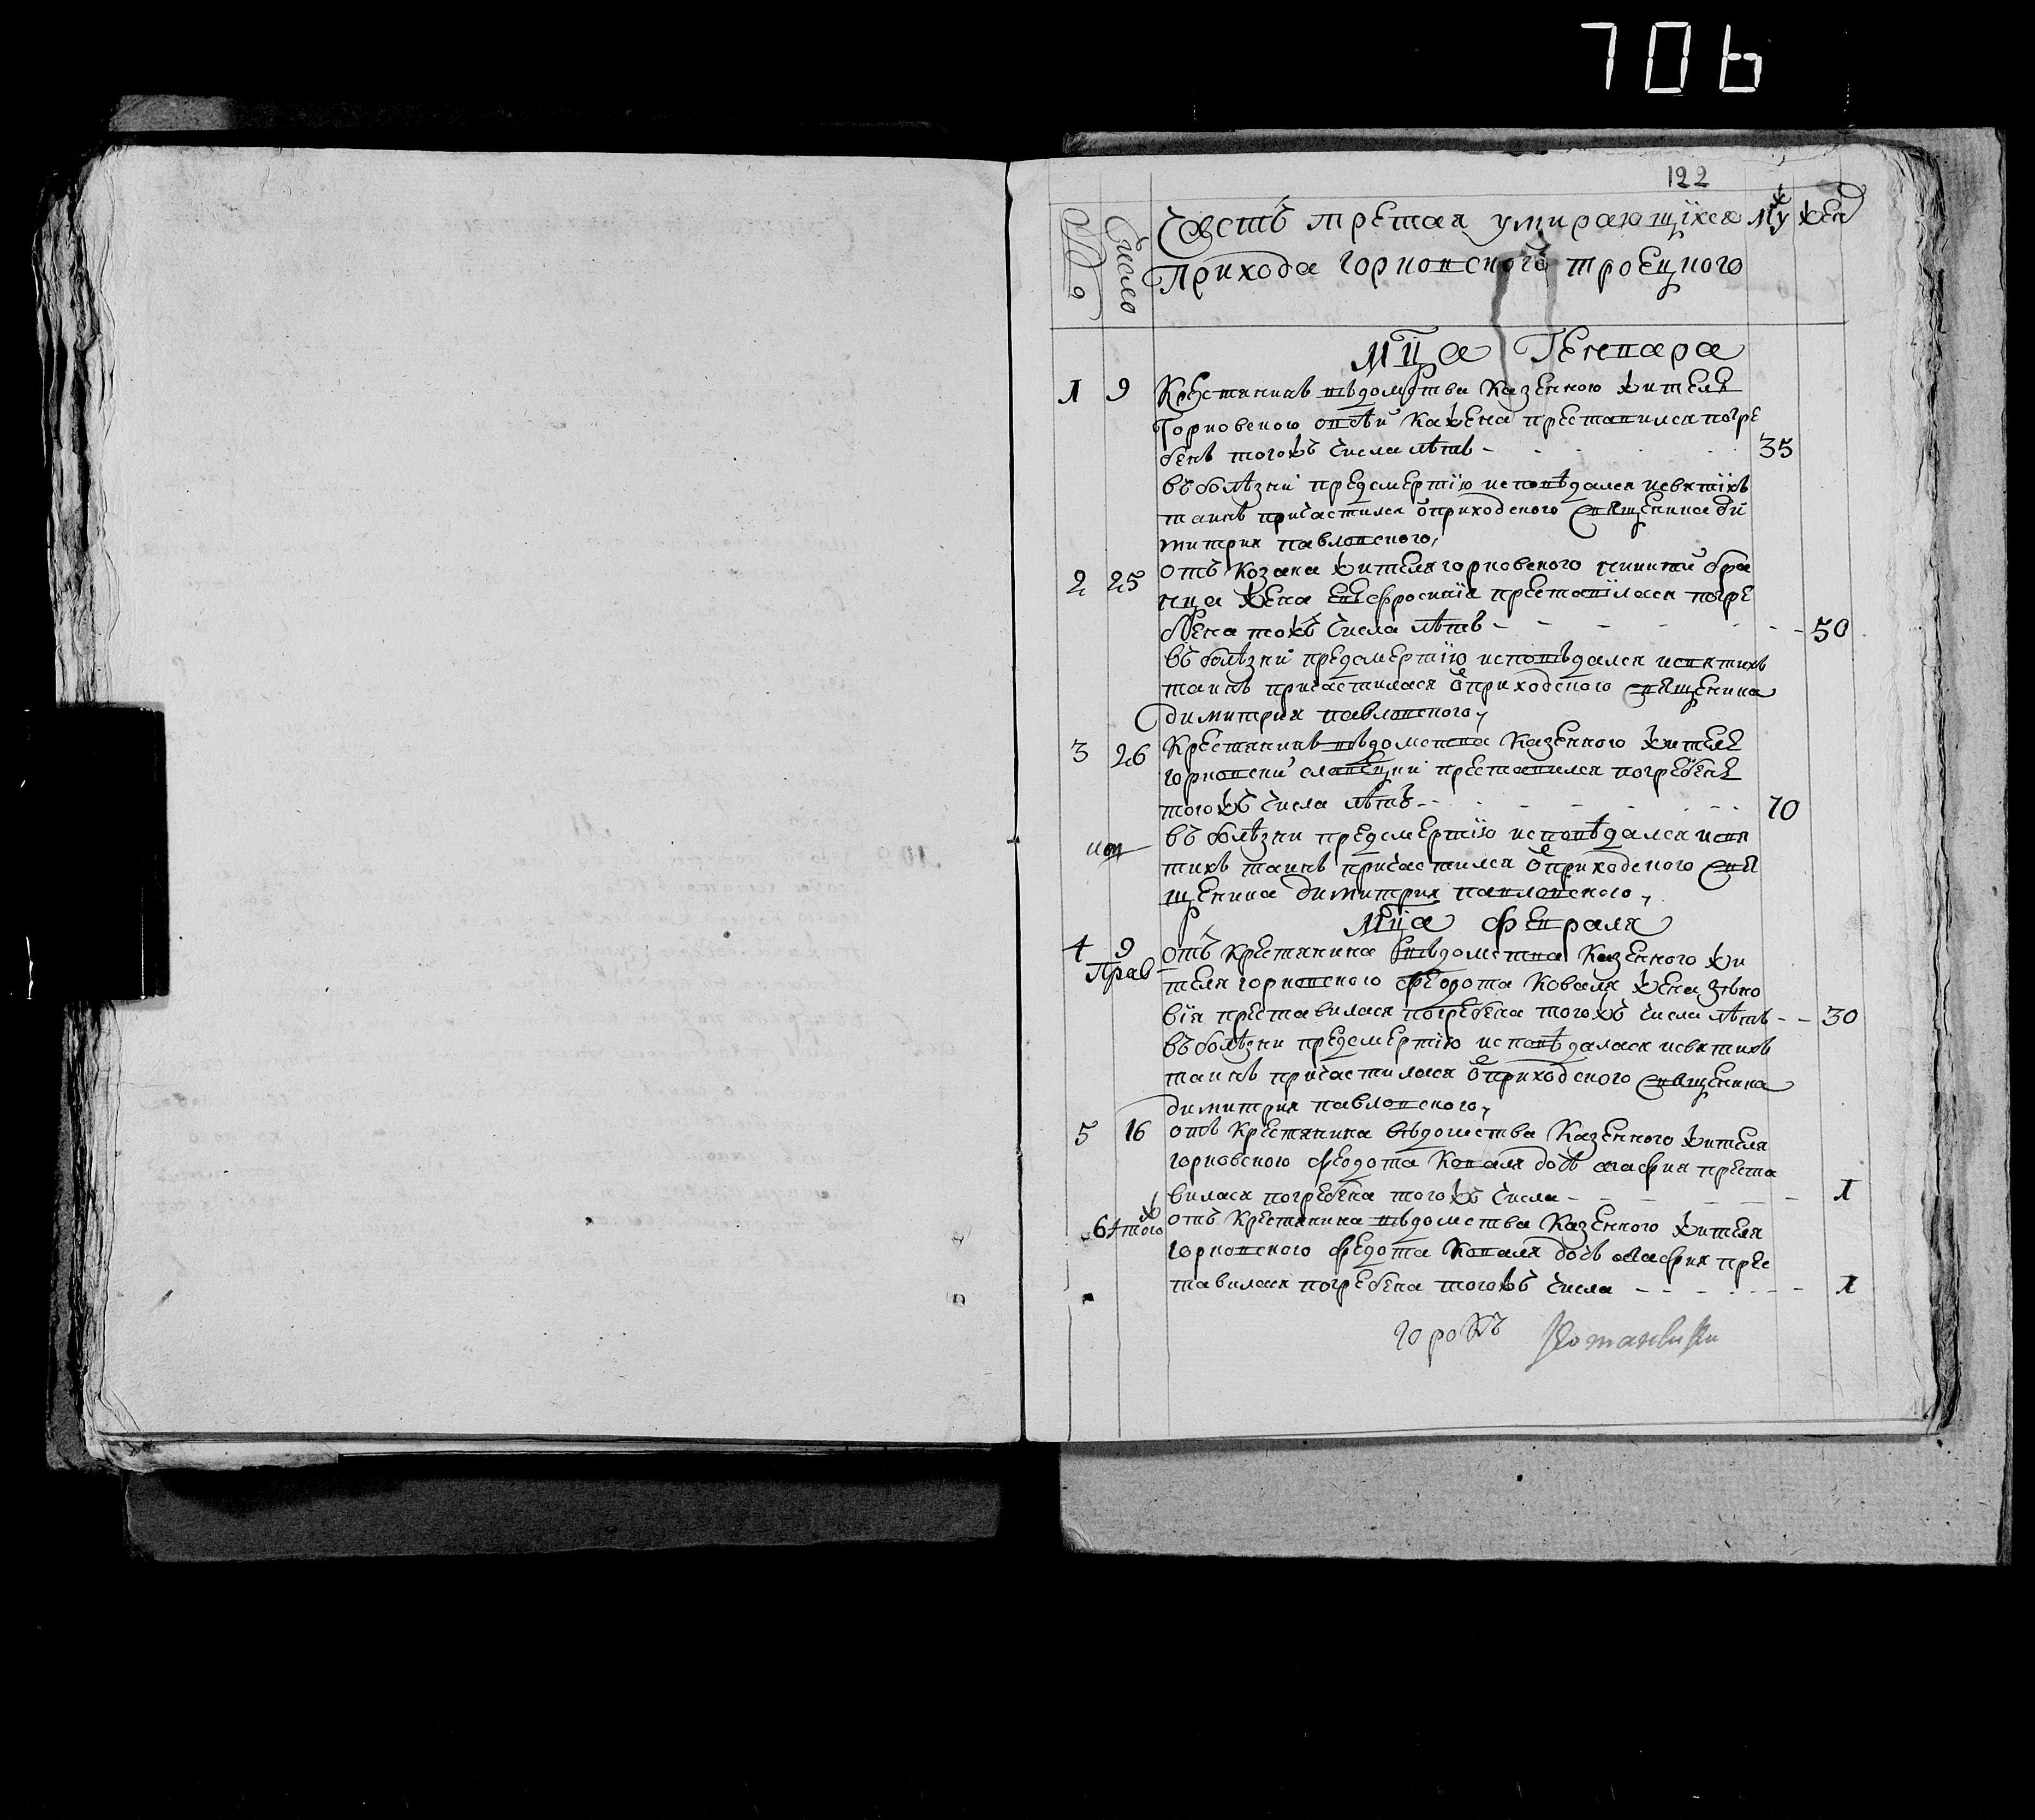 706
122
№ Число Часть третая умирающїхся Муж Жен
Прихода горковского троецкого
Мца Генваря
1 9 Крестянинъ вѣдомства Казенного жителѣ
Горковского Кажена преставился погре
бенъ того жъ числа лѣтъ - 35
въ болѣзни предсмертїю исповѣдался исвятїхъ
таинъ причастился ѿ приходского священика ди
митрия павловского,
2 25 отъ Козака жителя горковского
жена Евфросинїя преставїлася погре
бена того жъ числа лѣтъ - 50
въ болѣзни предсмертїю исповѣдался исвятихъ
таинъ причастилася ѿ приходского священика
димитрия павловского,
3 26 Крестянинъ вѣдомства Казенного жителѣ
горковский преставился погребенъ
того жъ числа лѣтъ - 70
въ болѣзни предсмертїю исповѣдался исвя
тихъ таинъ причастился ѿ приходского свя
щеника димитрия павловского,
Мца февраля
4 9 отъ Крестянина вѣдомства Казенного жи
теля горковского феодота Коваля жена зѣно
вїя преставилася погребена того жъ числа лѣтъ - - 30
въ болѣзни предсмертїю исповѣдалася исвятихъ
таинъ причастилася ѿ приходского священика
димитрия павловского,
5 16 отъ Крестянина вѣдомства Казенного жителя
горковского феодота Коваля дочь агафия преста
вилася погребена того жъ числа - 1
6 того ж отъ Крестянина вѣдомства Казенного жителя
горковского федота Коваля дочь агафия прес
тавилася погребена того жъ числа - 1